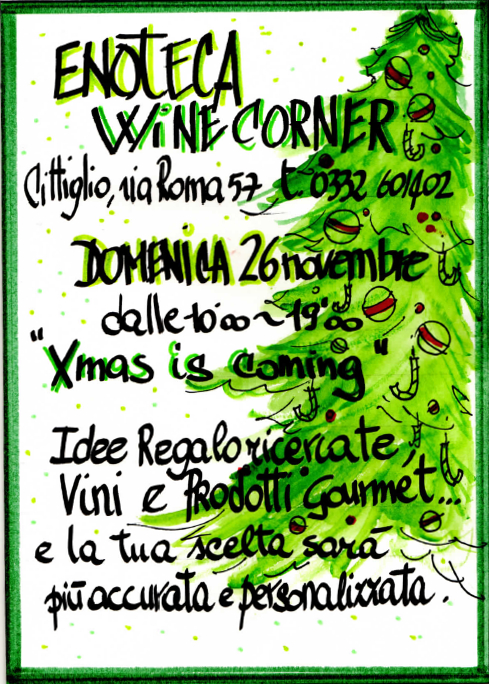 ENOTECA
WINE CORNER
Cittiglio, via Roma 57 t. 0332 601402
DOMENICA 26 novembre
dalle 10:00 ~ 19:00
"Xmas is coming"
Idee Regalo ricercate,
Vini e Prodotti Gourmet...
e la tua scelta sarà
più accurata e personalizzata.